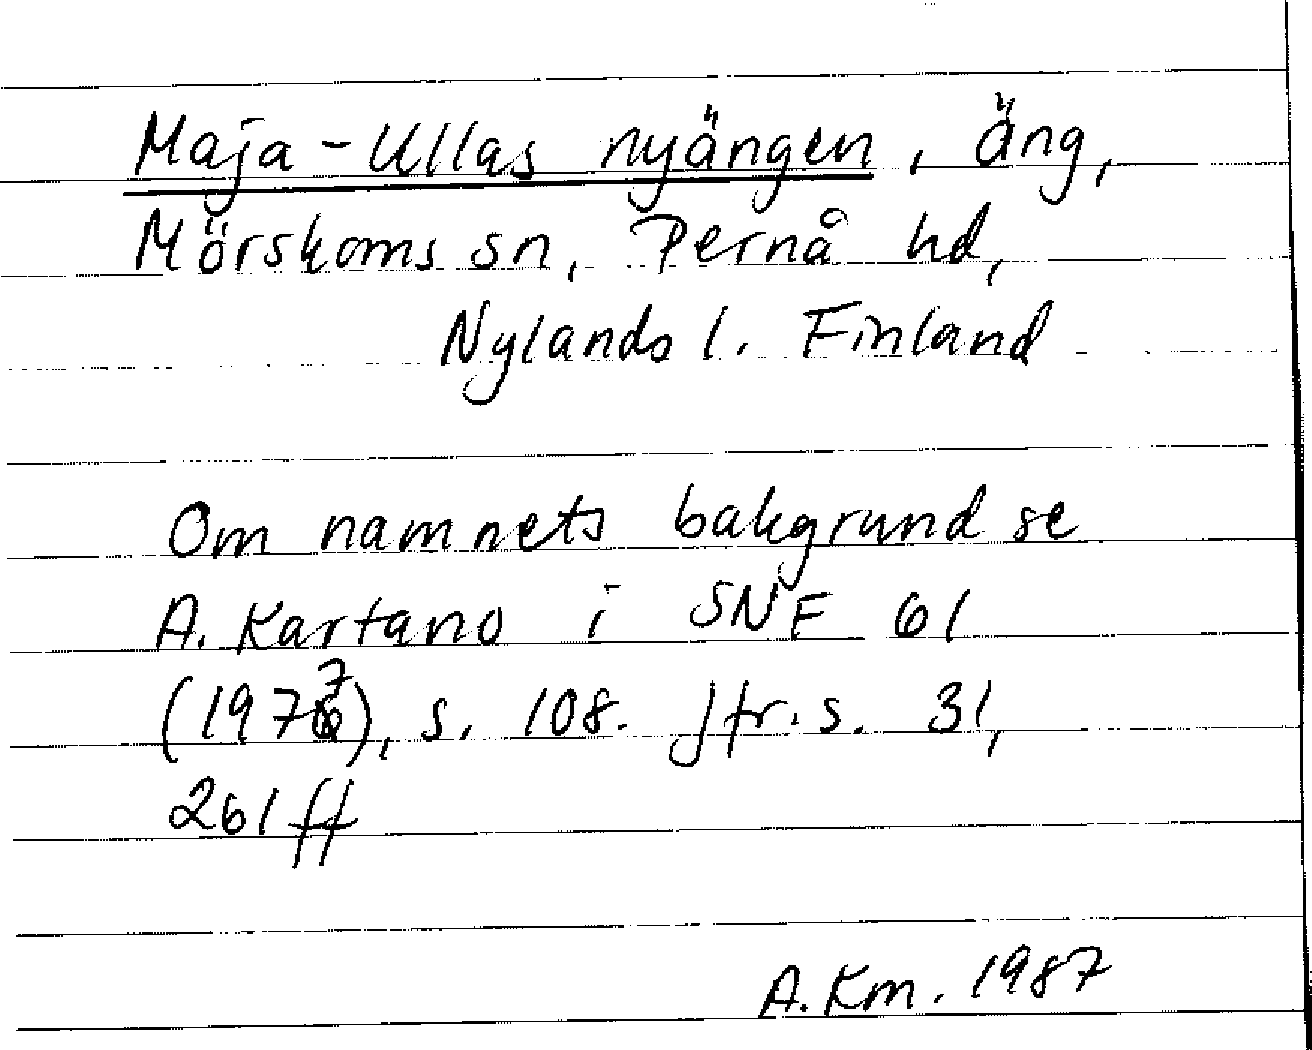 Maja-Ullas nyängen, äng,
Mörskoms sn, Pernå hd,
Nylands l. Finland
Om namnets bakgrund se
A. Kartano i SNF 61
(1977), s. 108. Jfr. s. 31,
261 ff
A. Km. 1987